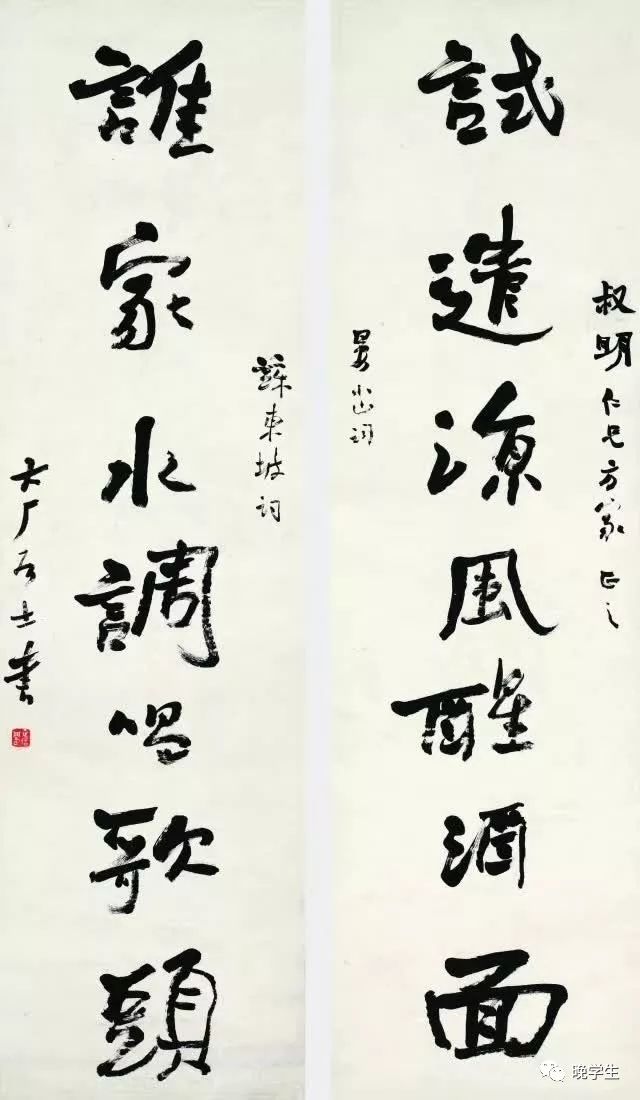 叔明仁兄方家正之
試遣涼風醒酒面
晏小山詞
蘇東坡詞
誰家水調唱歌頭
大厂居士書
晚学生